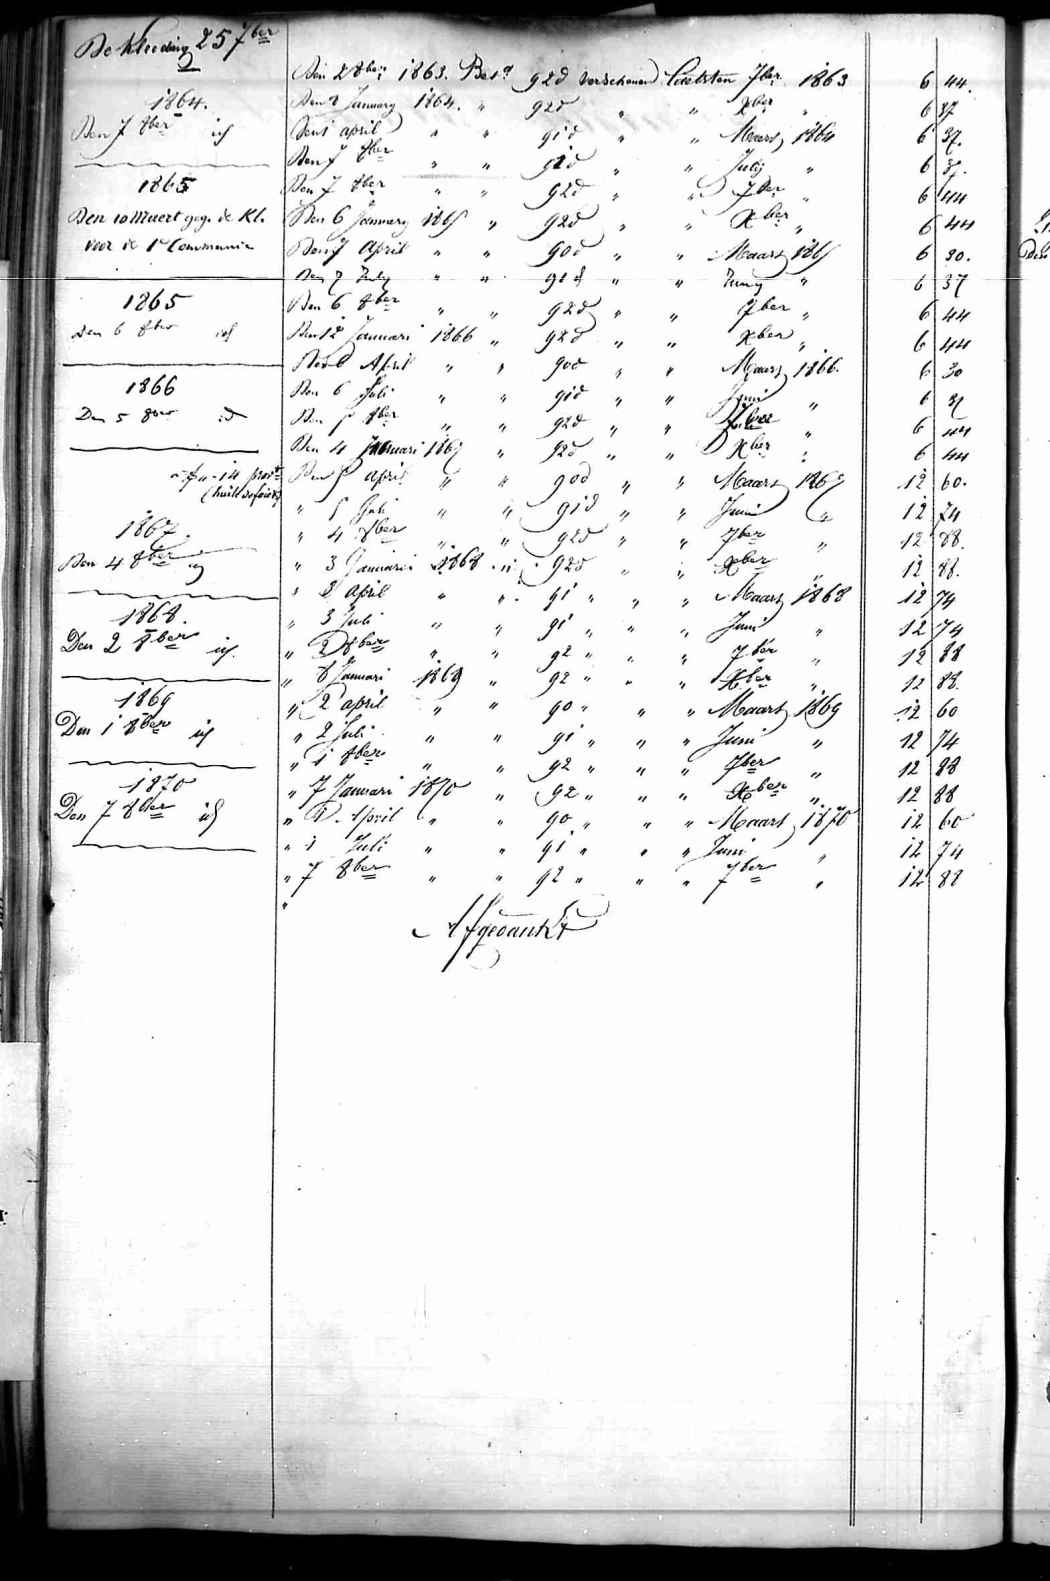 De kleeding 25 7ber
1864.
Den 7 8ber id
1865
Den 10 Maert gege. de Kl.
voor de 1e Communie
1865
Den 6 8ber id
1866
Den 5 8ber id
14 per
1867.
Den 4 8ber id
1868.
Den 2 8ber id.
1869
Den 1 8ber id
1870
Den 7 8ber id
Den 2 8ber 1863. Bet d 92d verschenen Laetsten 7ber 1863 6 44.
Den 2 January 1864. " 92d " " Xber " 6 37
Den 1 april " " 91d " " Maart 1864 6 37.
Den 7 8ber " " 92d " " July " 6 37.
Den 7 8ber " " 92d " " 7ber " 6 44
Den 6 January 1865 " 92d " " Xber " 6 44
Den 7 April " " 90d " " Maart 1865 6 30.
Den 7 July " " 91d " " Juny " 6 37
Den 6 8ber " " 92d " " 7ber " 6 44
Den 12 Januari 1866 " 92d " " Xber " 6 44
Den 6 April " " 90d " " Maart 1866. 6 30
Den 6 Juli " " 91d " " Juni " 6 37
Den 5 8ber " " 92d " " 7ber " 6 44
Den 4 Januari 1867 " 92d " " Xber " 6 44
Den 5 april " " 90d " " Maart 1867 12 60.
" 5 Juli " " 91d " " Juni " 12 74
" 4 8ber " " 92d " " 7ber " 12 88.
" 3 Januari 1868 " 92d " " Xber " 12 88.
" 3 april " " 91 " " " Maart 1868 12 74
" 3 Juli " " 91 " " " Juni " 12 74
" 2 8ber " " 92 " " " 7ber " 12 88
" 8 Januari 1869 " 92 " " " Xber " 12 88.
" 2 april " " 90 " " " Maart 1869 12 60
" 2 Juli " " 91 " " " Juni " 12 74
" 1 8ber " " 92 " " " 7ber " 12 88
" 7 Januari 1870 " 92 " " " Xber " 12 88
" 1 April " " 90 " " " Maart 1870 12 60
" 1 Juli " " 91 " " " Juni " 12 74
" 7 8ber " " 92 " " " 7ber " 12 88
"
Afgedankt